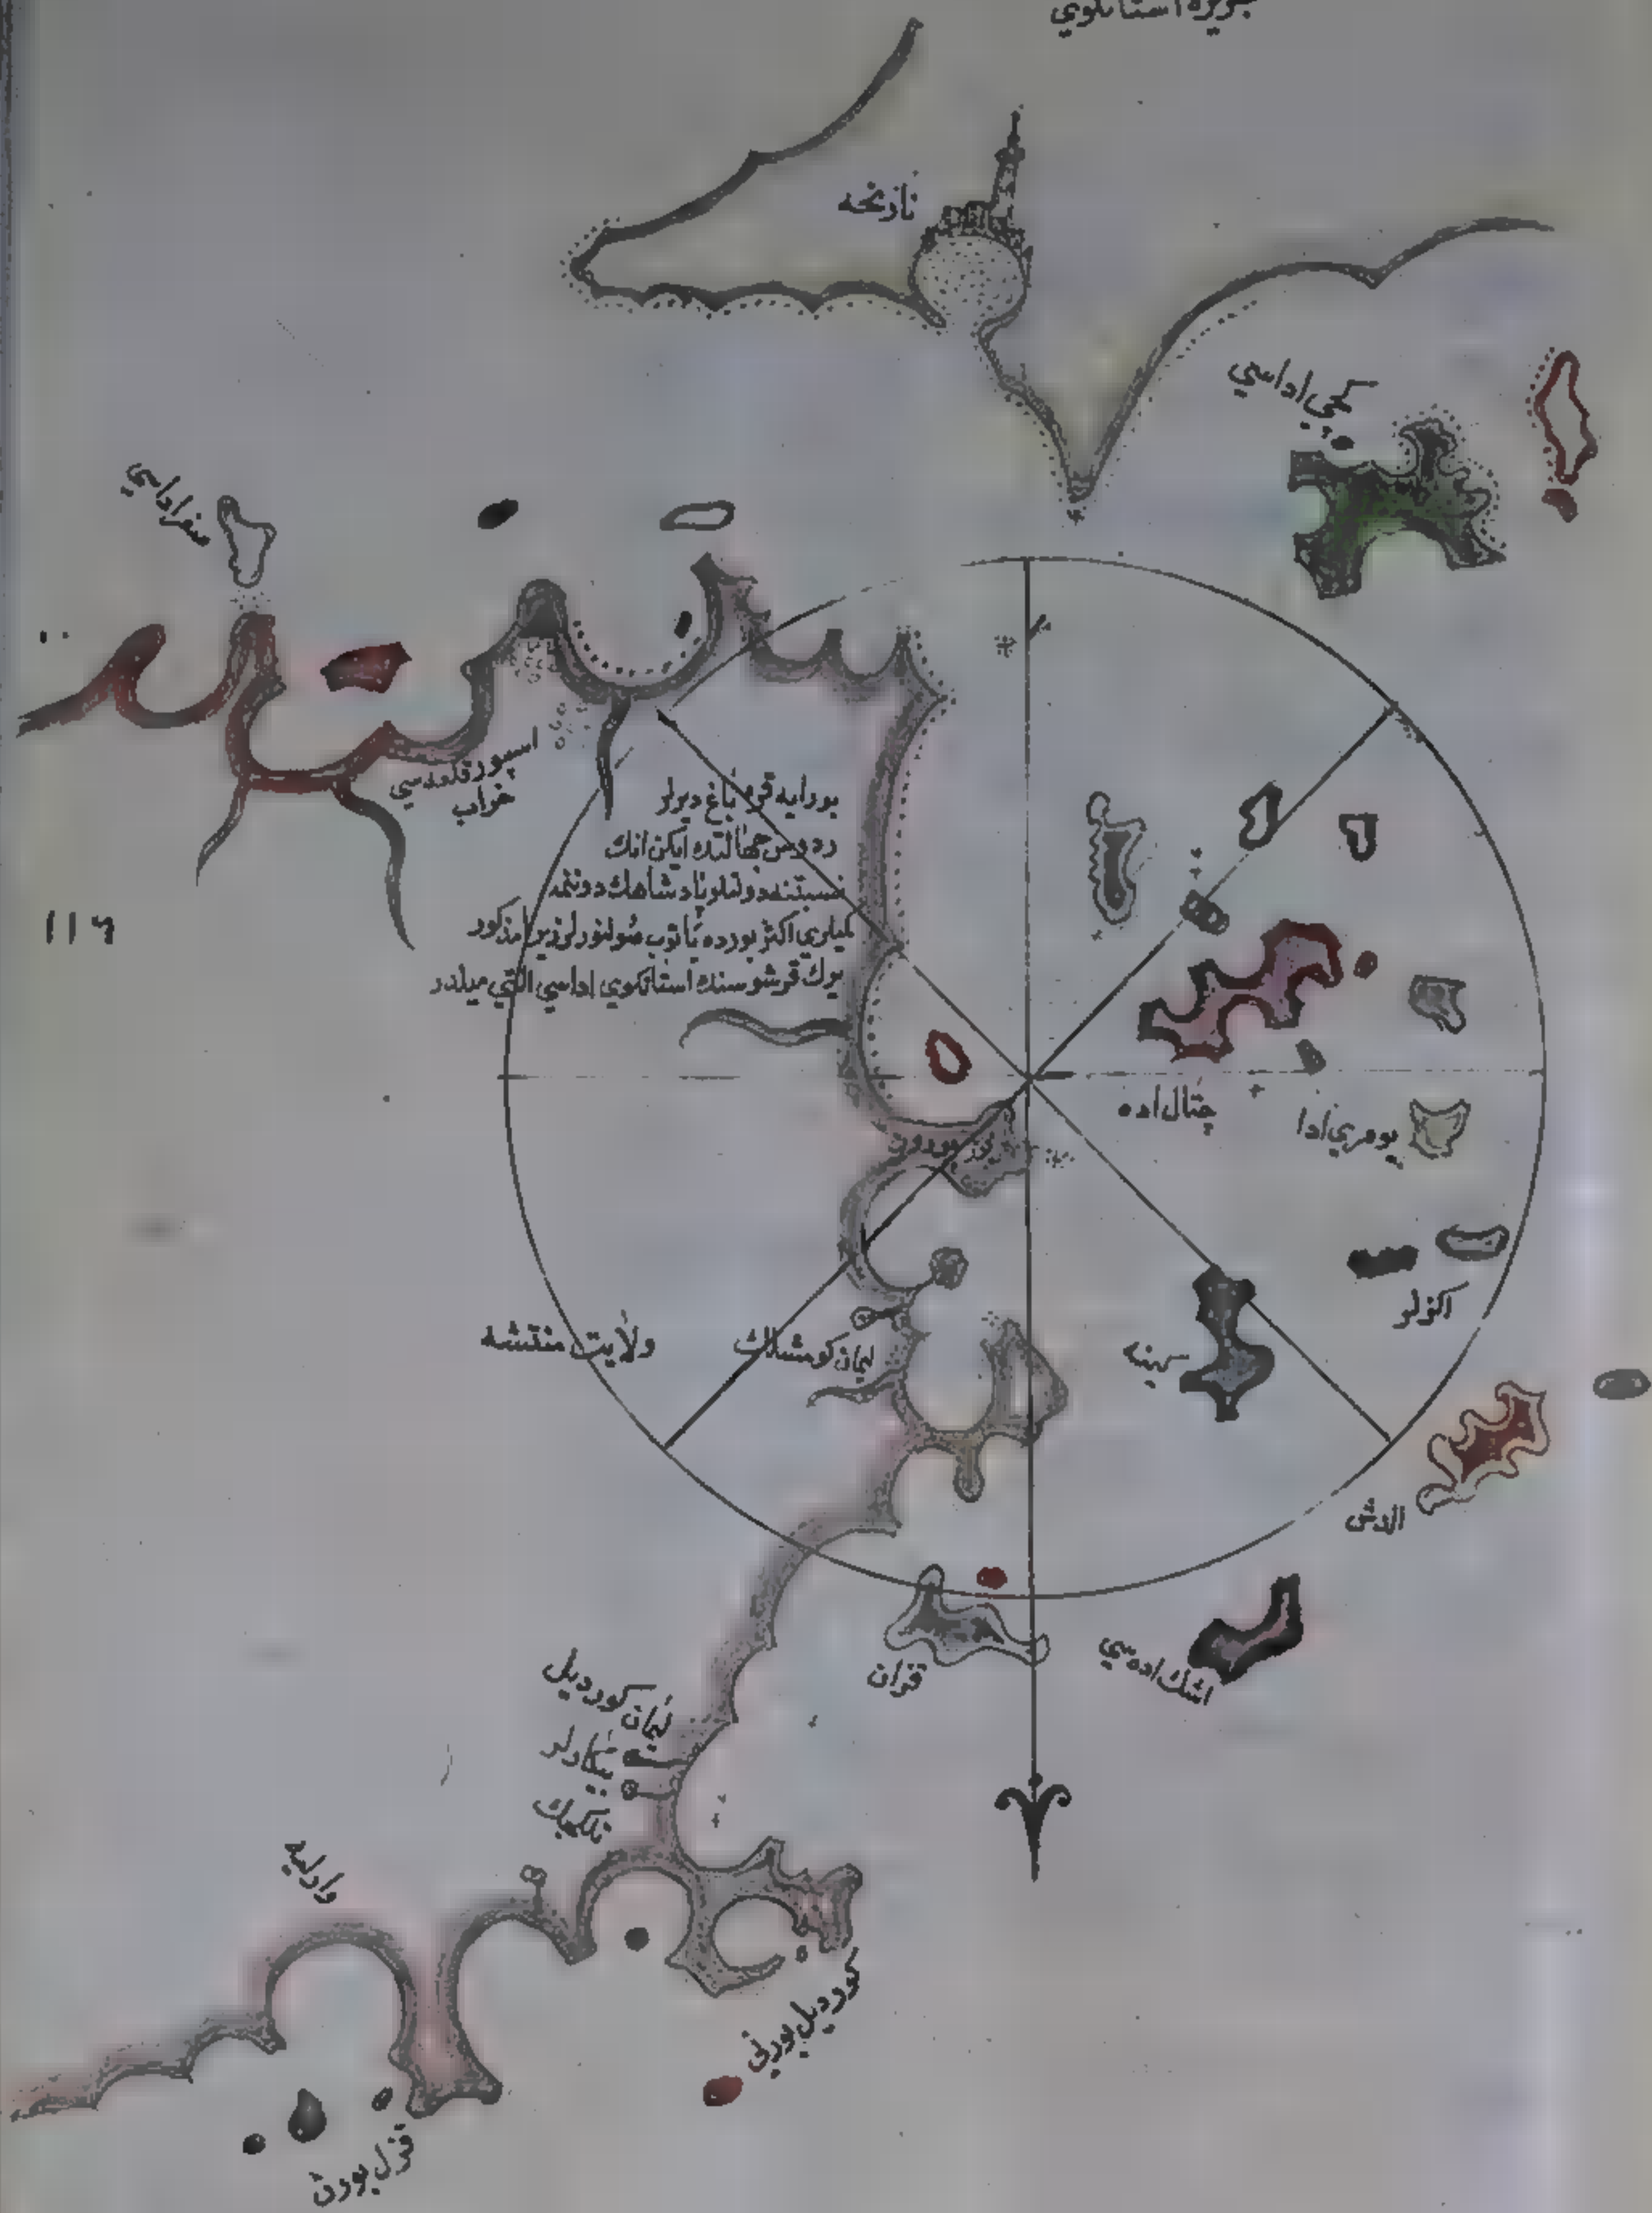 جزيره استانكوي
نارنجه
كچي اداسي
صفر اداسي
اسپور قلعه سي
خراب
بورايه قره باغ ديرلر
ردوس جهالتده ايكن انك
نسبتنه دولتلو پادشاهك دوننمه
كميلري اكثر بورده ياتوب صولنورلر زيرا مذكور
يرك قرشوسنده استانكوي اداسي التي ميلدر
١١٦
چتال اده
يومري ادا
بورون
اكزلر
ولايت منتشه
ليمان كومشلك
كينه
الدش
قزان
اشك اده سي
ليمان كورديل
وارليه
كورديل بورني
قزل بورن